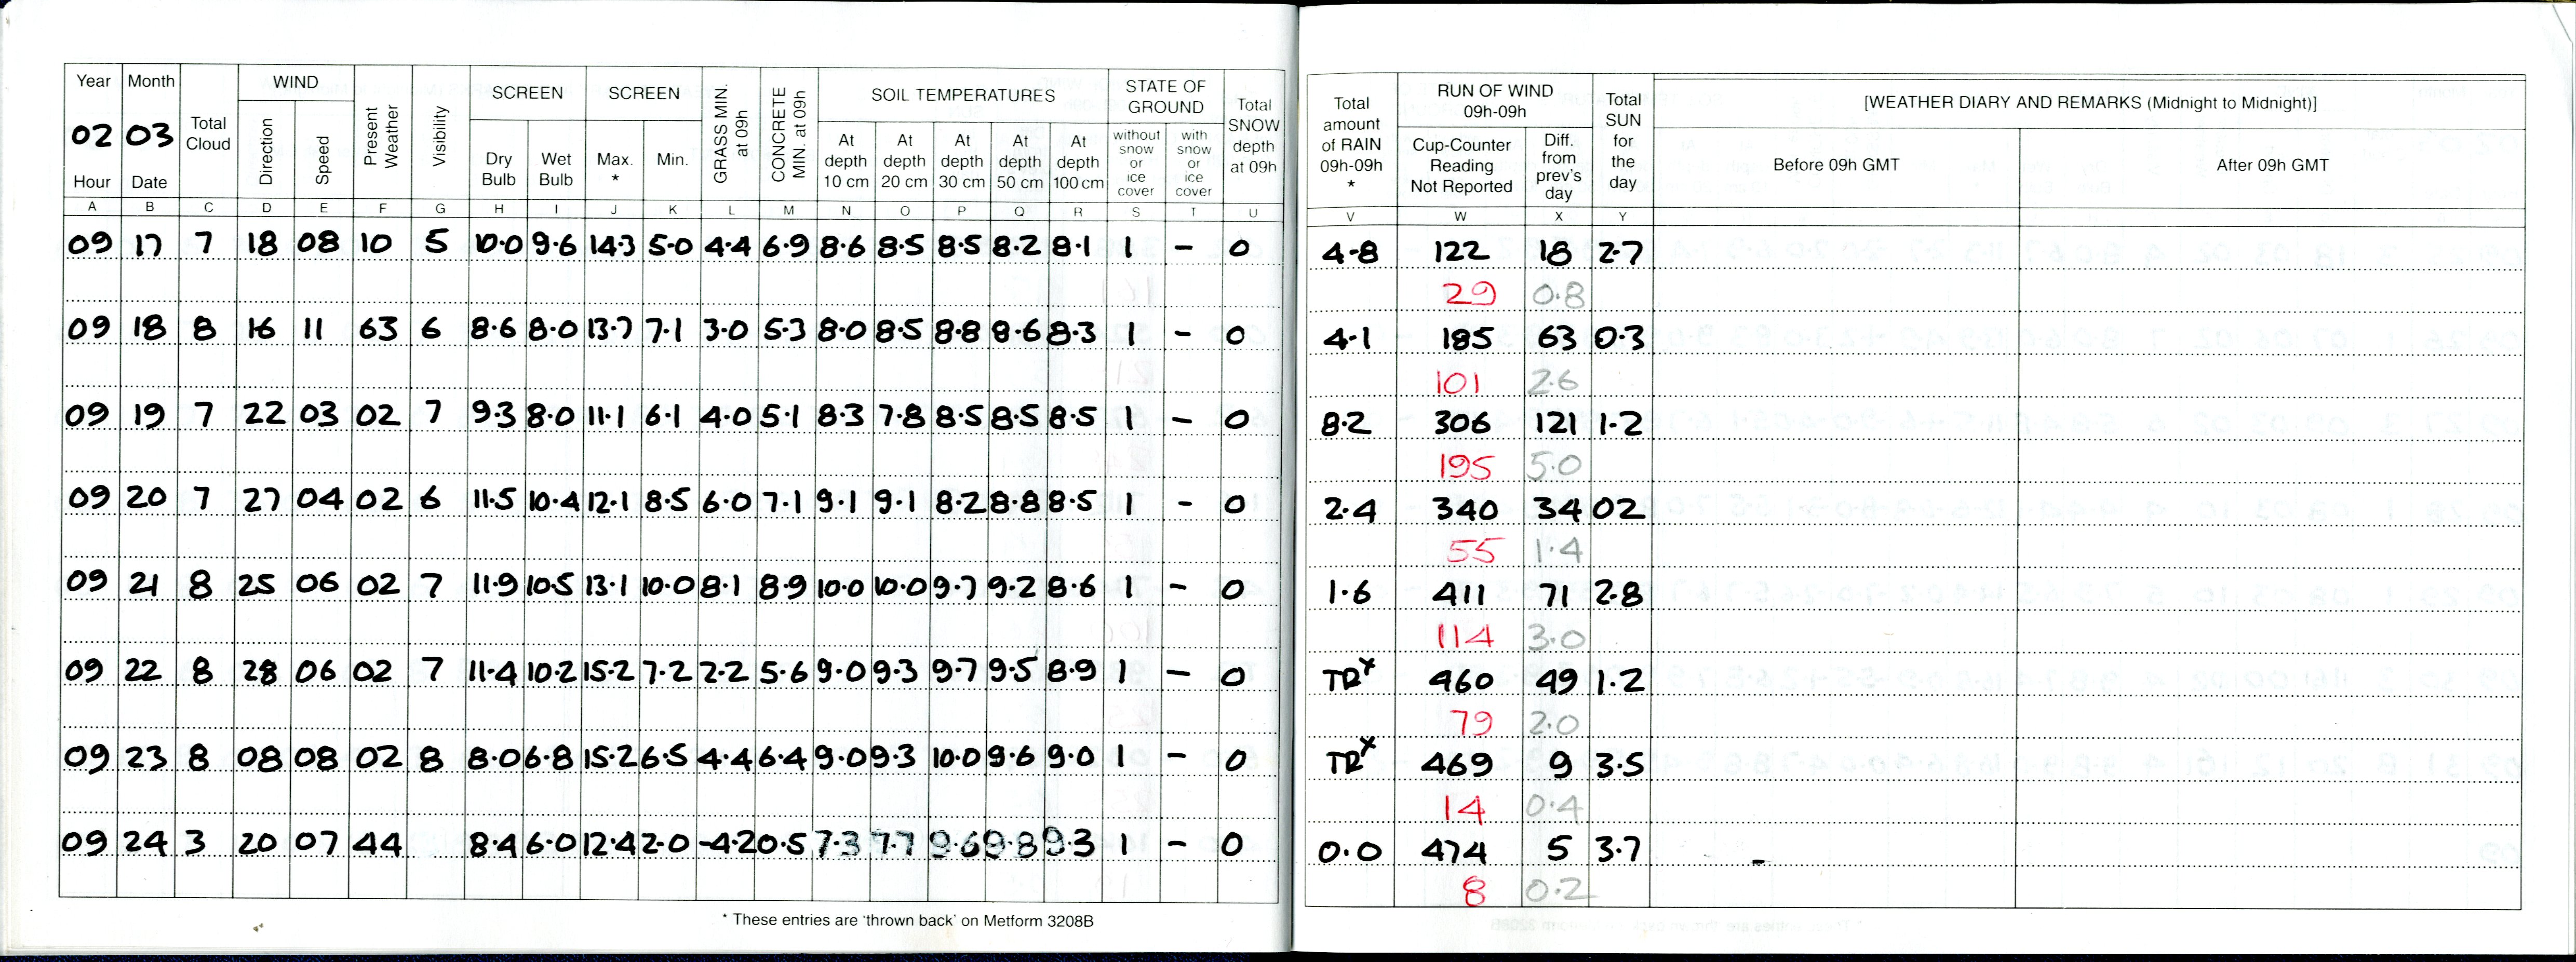 Year Month Total Cloud WIND Present Weather Visibility SCREEN SCREEN GRASS MIN. at 09h CONCRETE MIN. at 09h SOIL TEMPERATURES STATE OF GROUND Total SNOW depth at 09h Total amount of RAIN 09h-09h * RUN OF WIND 09h-09h Total SUN for the day [WEATHER DIARY AND REMARKS (Midnight to Midnight)]
02 03 Direction Speed Dry Bulb Wet Bulb Max. * Min. At depth 10 cm At depth 20 cm At depth 30 cm At depth 50 cm At depth 100 cm without snow or ice cover with snow or ice cover Cup-Counter Reading Not Reported Diff. from prev's day Before 09h GMT After 09h GMT
Hour Date
A B C D E F G H I J K L M N O P Q R S T U V W X Y
09 17 7 18 08 10 5 10.0 9.6 14.3 5.0 4.4 6.9 8.6 8.5 8.5 8.2 8.1 1 - 0 4.8 122 18 2.7
29 0.8
09 18 8 16 11 63 6 8.6 8.0 13.7 7.1 3.0 5.3 8.0 8.5 8.8 8.6 8.3 1 - 0 4.1 185 63 0.3
101 2.6
09 19 7 22 03 02 7 9.3 8.0 11.1 6.1 4.0 5.1 8.3 7.8 8.5 8.5 8.5 1 - 0 8.2 306 121 1.2
195 5.0
09 20 7 27 04 02 6 11.5 10.4 12.1 8.5 6.0 7.1 9.1 9.1 8.2 8.8 8.5 1 - 0 2.4 340 34 02
55 1.4
09 21 8 25 06 02 7 11.9 10.5 13.1 10.0 8.1 8.9 10.0 10.0 9.7 9.2 8.6 1 - 0 1.6 411 71 2.8
114 3.0
09 22 8 28 06 02 7 11.4 10.2 15.2 7.2 2.2 5.6 9.0 9.3 9.7 9.5 8.9 1 - 0 TRx 460 49 1.2
79 2.0
09 23 8 08 08 02 8 8.0 6.8 15.2 6.5 4.4 6.4 9.0 9.3 10.0 9.6 9.0 1 - 0 TRx 469 9 3.5
14 0.4
09 24 3 20 07 44 8.4 6.0 12.4 2.0 -4.2 0.5 7.3 7.7 9.6 9.8 9.3 1 - 0 0.0 474 5 3.7 -
8 0.2
* These entries are 'thrown back' on Metform 3208B